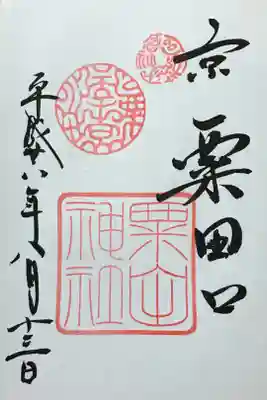 京 粟田口
粟田神社
平成廿八年八月十三日